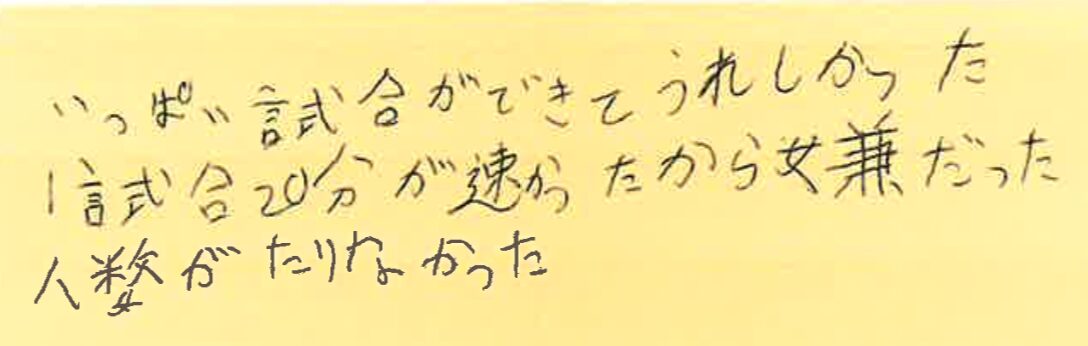 いっぱい試合ができてうれしかった
1試合20分が速かったから嫌だった
人数がたりなかった